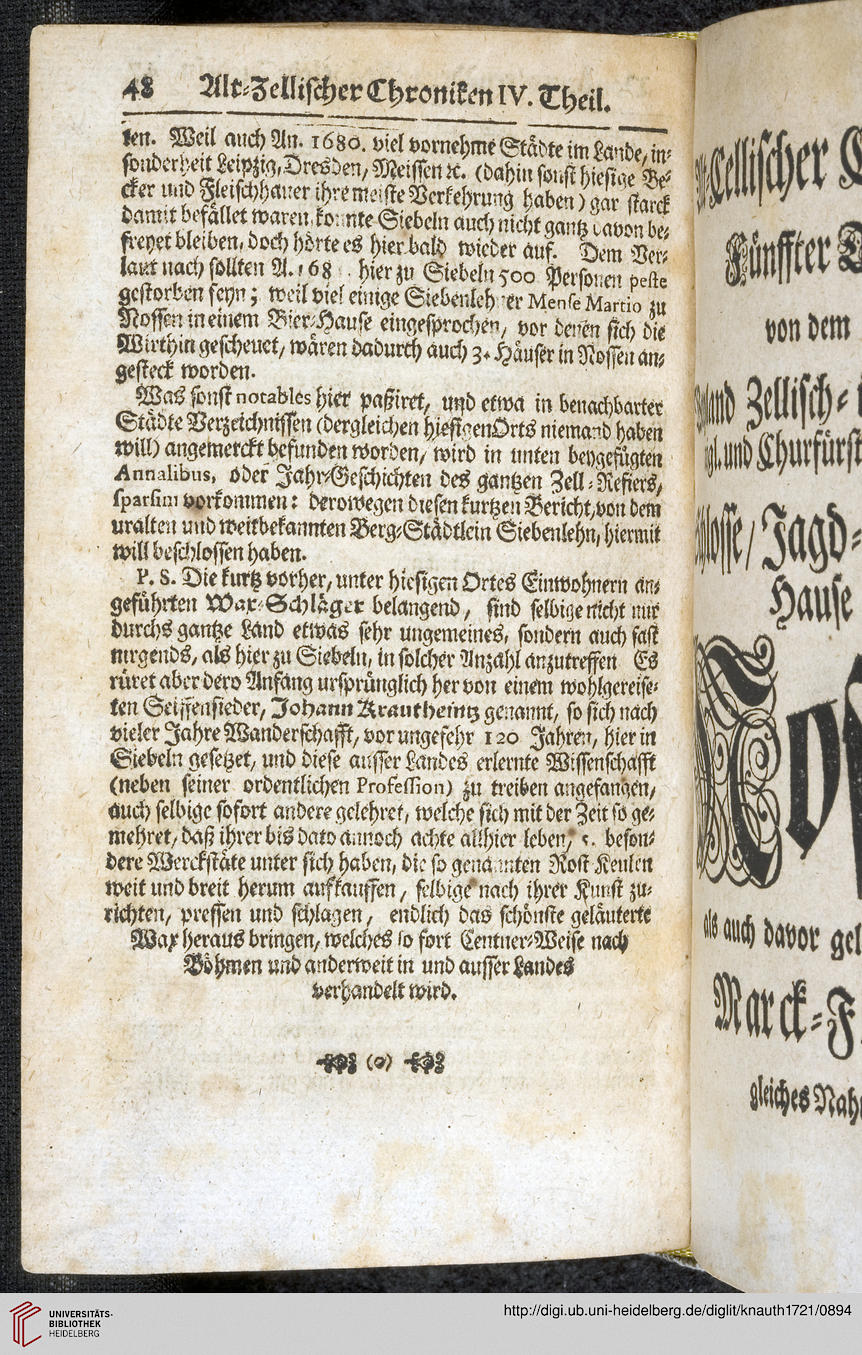 48 Alt-Zellischer Chroniken IV. Theil.
ken. Weil auch An. 1680. viel vornehme Städte im Lande, in-
sonderheit Leipzig, Dresden, Meissen ꝛc. (dahin sonst hiesige Be-
cker und Fleischhauer ihre meiste Verkehrung haben) gar starck
damit befället waren, konnte Siebeln auch nicht gantz davon be-
freyet bleiben, doch hörte es hier bald wieder auf. Dem Ver-
laut nach sollten A. 168 . hier zu Siebeln 500 Personen peste
gestorben seyn; weil viel einige Siebenlehner Mense Martio zu
Nossen in einem Bier-Hause eingesprochen, vor denen sich die
Wirthin gescheuet, wären dadurch auch 3. Häuser in Nossen an-
gesteckt worden.
Was sonst notables hier paßiret, und etwa in benachbarter
Städte Verzeichnissen (dergleichen hiesigen Orts niemand haben
will) angemerckt befunden worden, wird in unten beygefügten
Annalibus, oder Jahr-Geschichten des gantzen Zell-Refiers,
sparsim vorkommen: derowegen diesen kurtzen Bericht, von dem
uralten und weitbekannten Berg-Städtlein Siebenlehn, hiermit
will beschlossen haben.
P. S. Die kurtz vorher, unter hiesigen Ortes Einwohnern an-
geführten Wax-Schläger belangend, sind selbige nicht nur
durchs gantze Land etwas sehr ungemeines, sondern auch fast
nirgends, als hier zu Siebeln, in solcher Anzahl anzutreffen Es
rüret aber dero Anfang ursprünglich her von einem wohlgereise-
ten Seiffensieder, Johann Krautheintz genannt, so sich nach
vieler Jahre Wanderschafft, vor ungefehr 120 Jahren, hier in
Siebeln gesetzet, und diese ausser Landes erlernte Wissenschafft
(neben seiner ordentlichen Profession) zu treiben angefangen,
auch selbige sofort andere gelehret, welche sich mit der Zeit so ge-
mehret, daß ihrer bis dato annoch achte allhier leben, 5. beson-
dere Werckstäte unter sich haben, die so genannten Rost Keulen
weit und breit herum aufkauffen, selbige nach ihrer Kunst zu-
richten, pressen und schlagen, endlich das schönste geläuterte
Wax heraus bringen, welches so fort Centner-Weise nach
Böhmen und anderweit in und ausser Landes
verhandelt wird.
(o)
Cellischer
Fünffter
von dem
Zellisch-
und Churfürst
Jagd-
Hause
als auch davor gel
Marck-F
gleiches Nahm
UNIVERSITÄTS-
BIBLIOTHEK
HEIDELBERG
http://digi.ub.uni-heidelberg.de/diglit/knauth1721/0894